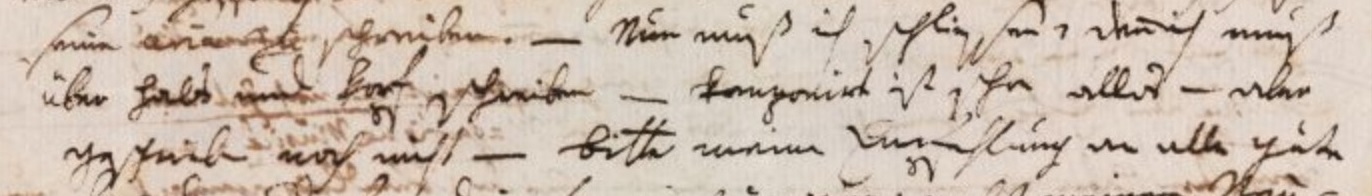 seine aria zu schreiben. — Nun muß ich schliessen, denn ich muß
über hals und kopf schreiben — komponirt ist schon alles — aber
geschrieben noch nicht — bitte meine Empfehlung an alle gute